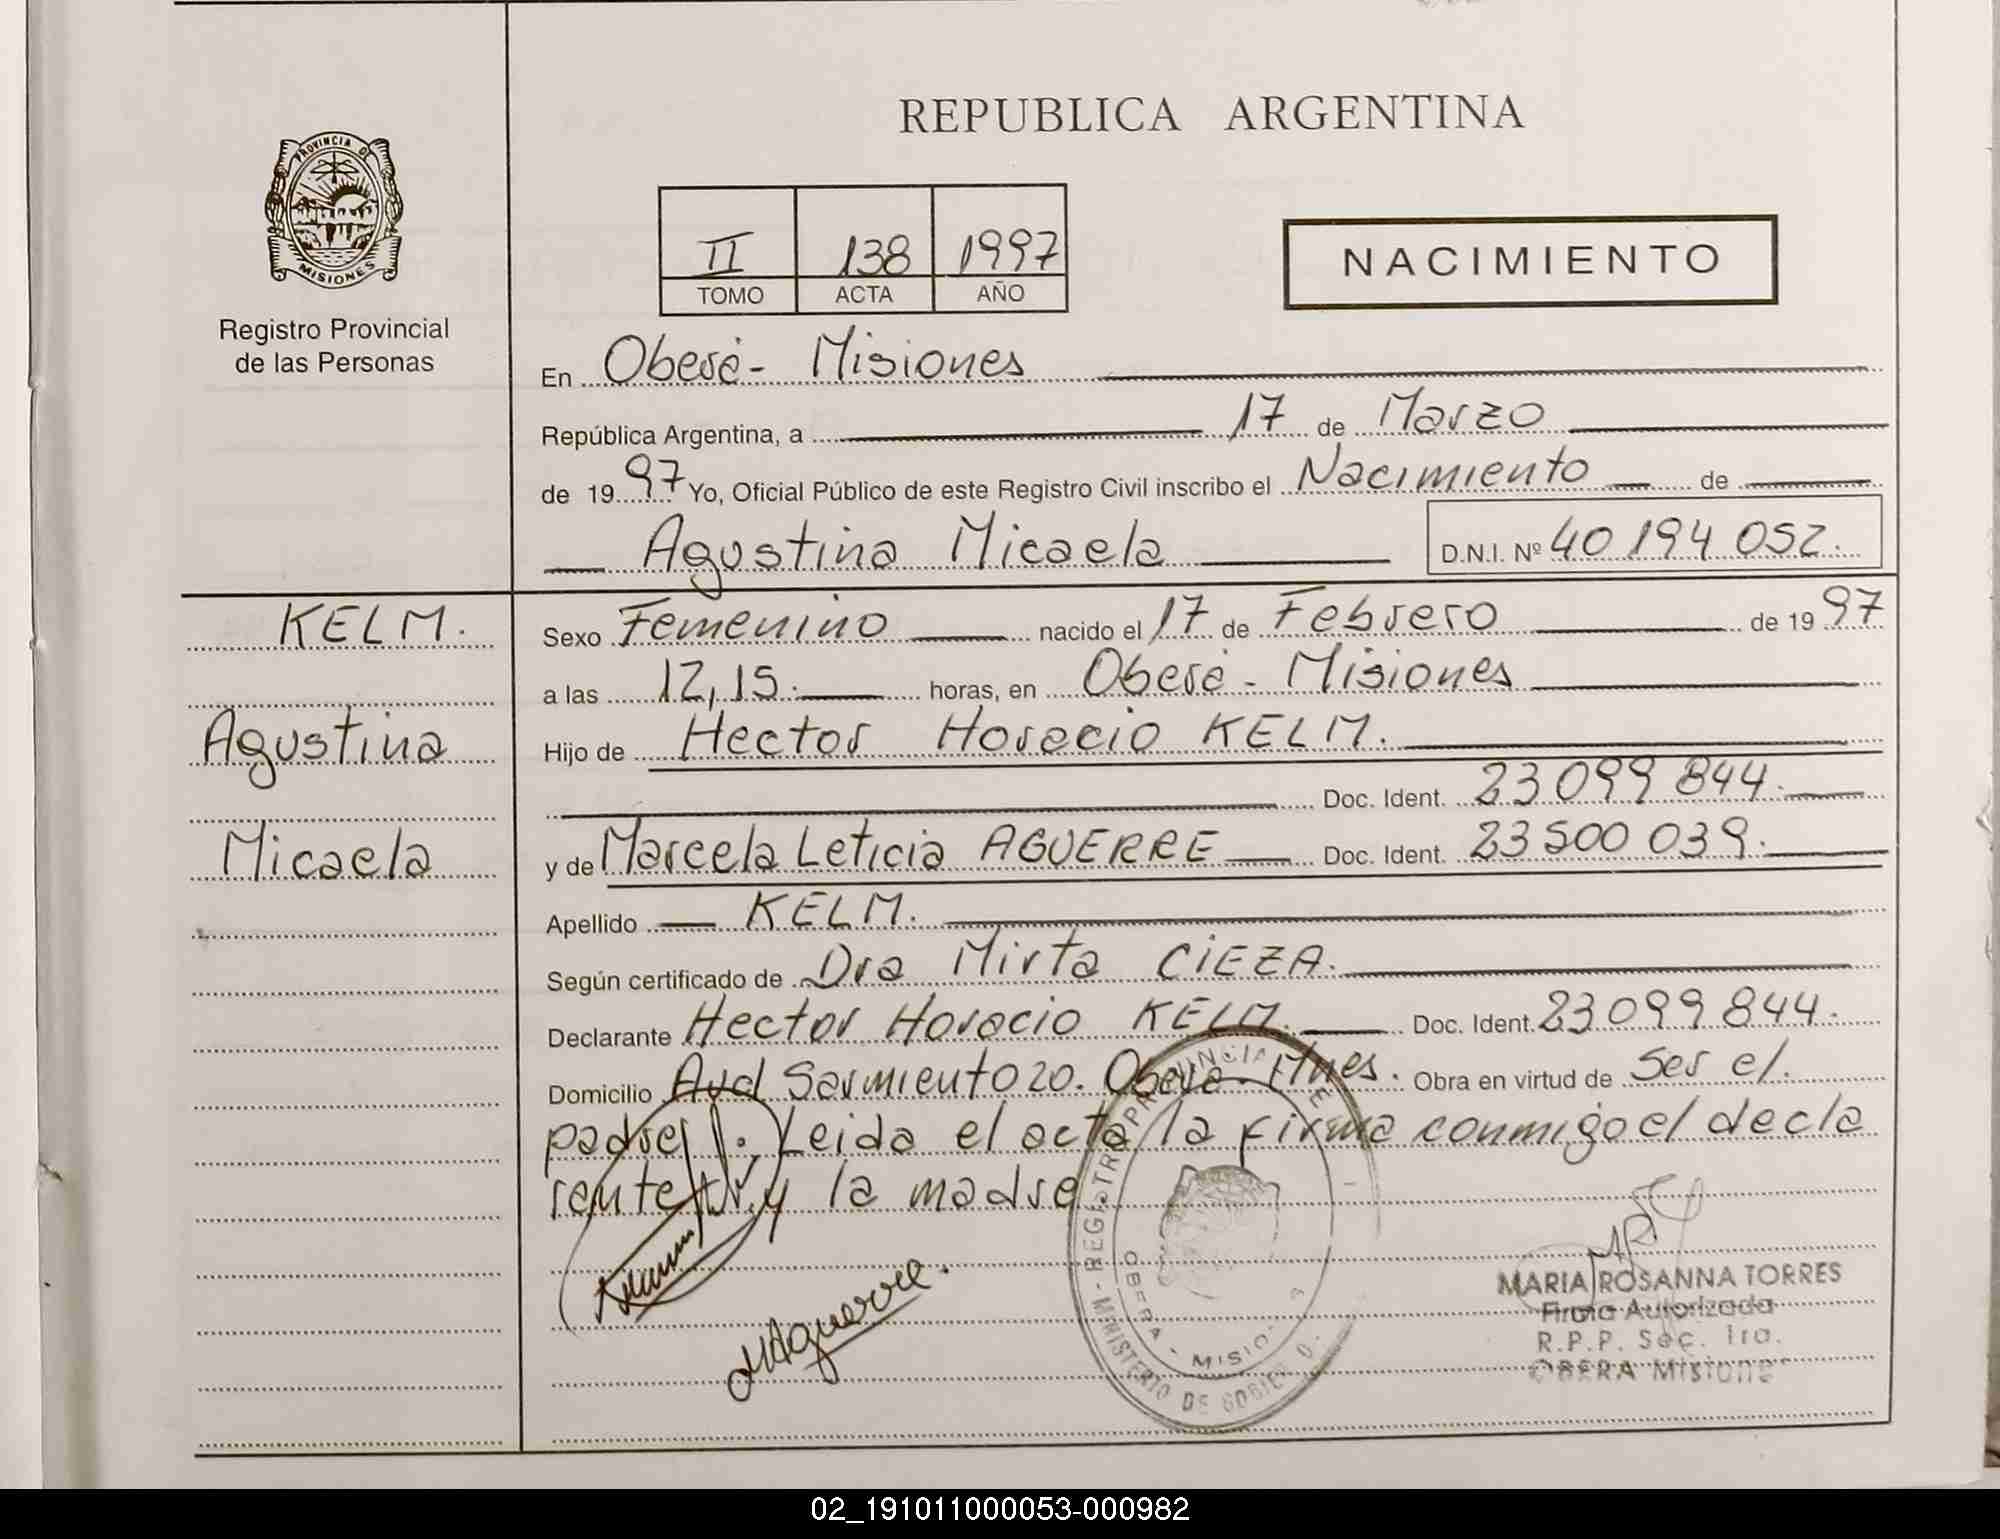 REPUBLICA ARGENTINA
PROVINCIA DE
MISIONES
Registro Provincial
de las Personas
II 138 1997
TOMO ACTA AÑO
NACIMIENTO
En Oberá - Misiones
República Argentina, a 17 de Marzo
de 19 97 Yo, Oficial Público de este Registro Civil inscribo el Nacimiento de
Agustina Micaela D.N.I. Nº 40 194 052.
KELM.
Agustina
Micaela
Sexo Femenino nacido el 17 de Febrero de 19 97
a las 12,15. horas, en Oberá - Misiones
Hijo de Hector Horacio KELM.
Doc. Ident. 23 099 844.
y de Marcela Leticia AGUERRE Doc. Ident. 23 500 039.
Apellido KELM.
Según certificado de Dra Mirta CIEZA.
Declarante Hector Horacio KELM. Doc. Ident. 23 099 844.
Domicilio Avd Sarmiento 20. Oberá - Mnes. Obra en virtud de Ser el
padre. Leida el acta la firma conmigo el decla
rente y la madre
MAguerre.
MARIA ROSANNA TORRES
Firma Autorizada
R.P.P. Sec. 1ra.
OBERA Misiones
REGISTRO PROVINCIAL DE
MINISTERIO DE GOBIERNO
OBERA - MISIO
02_191011000053-000982